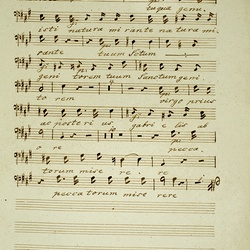 tu quæ genu
isti natura mirante natura mi
rante tuum Sotum
geni torem tuum Sanctum geni
torem virgo prius
ac posteri us gabri e lis ab
o re pecca
torum mise re re
peccatorum mise rere